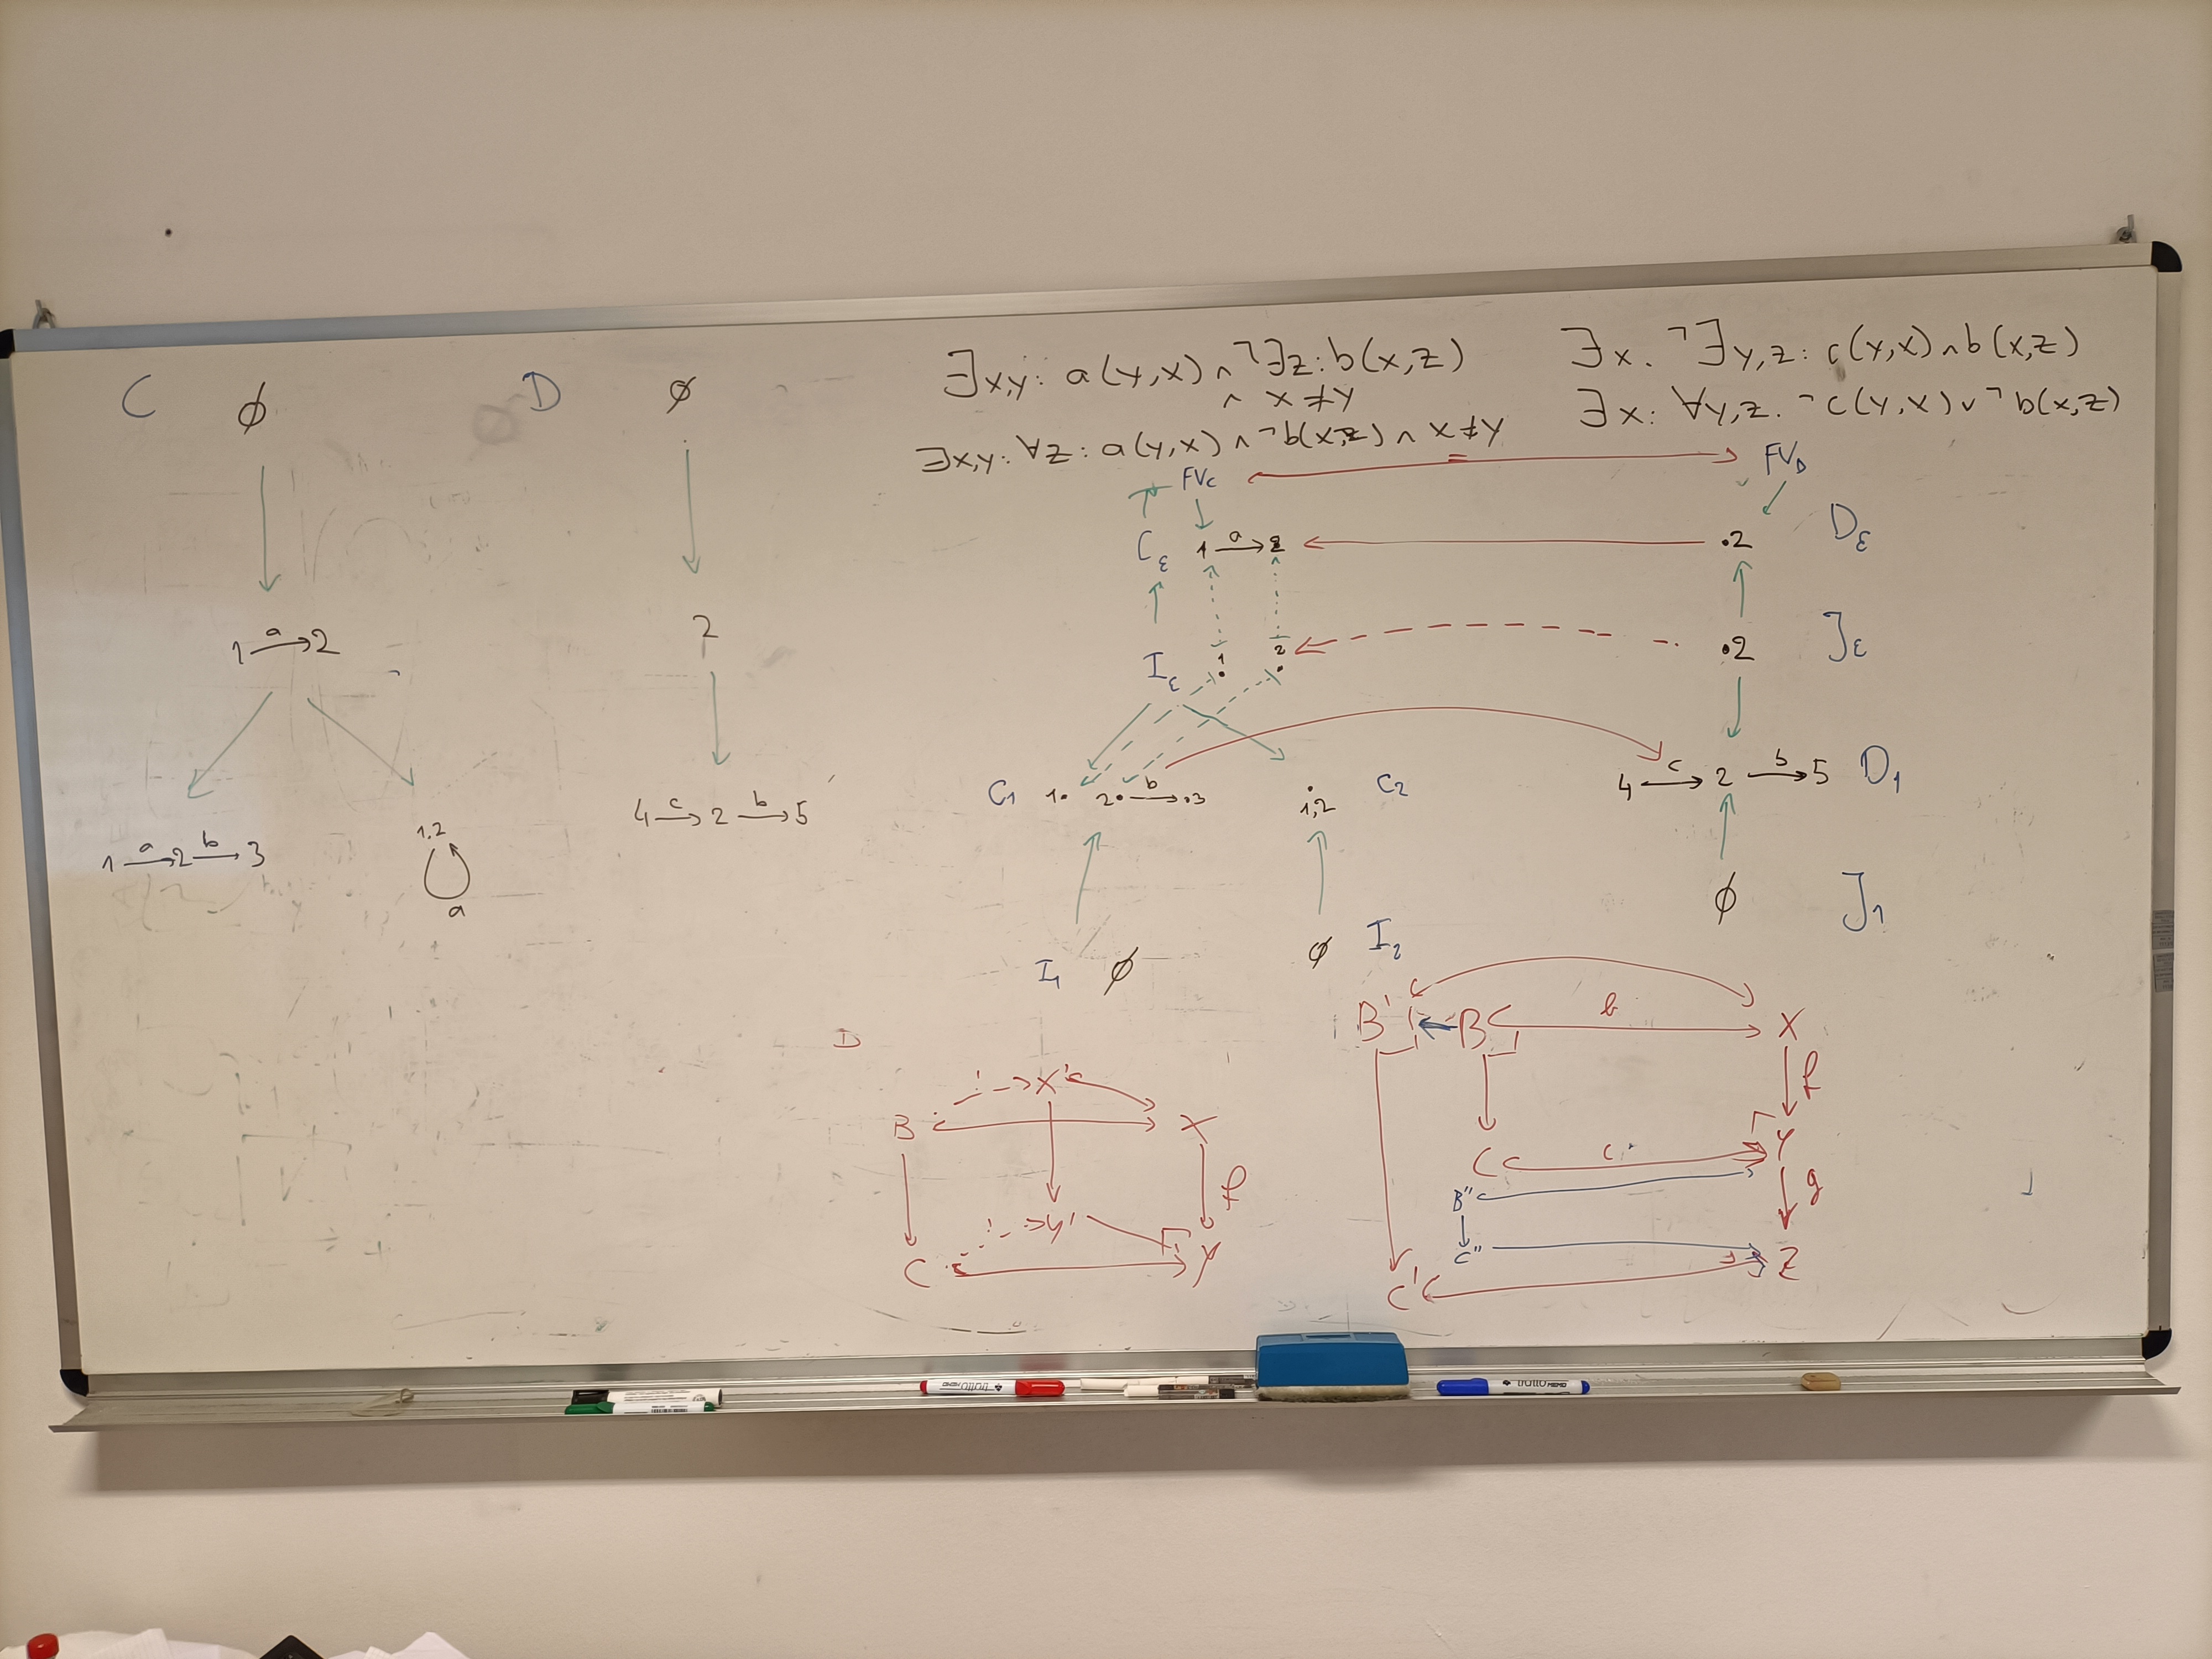 C ∅ D ∅
1 a→ 2
2
1 a→ 2 b→ 3
1,2
a
4 c→ 2 b→ 5
∃x,y: a(y,x) ∧ ¬∃z: b(x,z)
∧ x ≠ y
∃x,y: ∀z: a(y,x) ∧ ¬b(x,z) ∧ x ≠ y
∃x. ¬∃y,z: c(y,x) ∧ b(x,z)
∃x: ∀y,z. ¬c(y,x) ∨ ¬b(x,z)
FVc = FVD
Cε 1 a→ 2 .2 Dε
Iε 1 2 .2 Jε
C1 1. 2. b→ .3 1,2 C2 4 c→ 2 b→ 5 D1
I1 ∅ ∅ I2 ∅ J1
D
! X'
B X
f
! Y'
C Y
B' B b X
f
C c Y
B'' g
C'' Z
C'